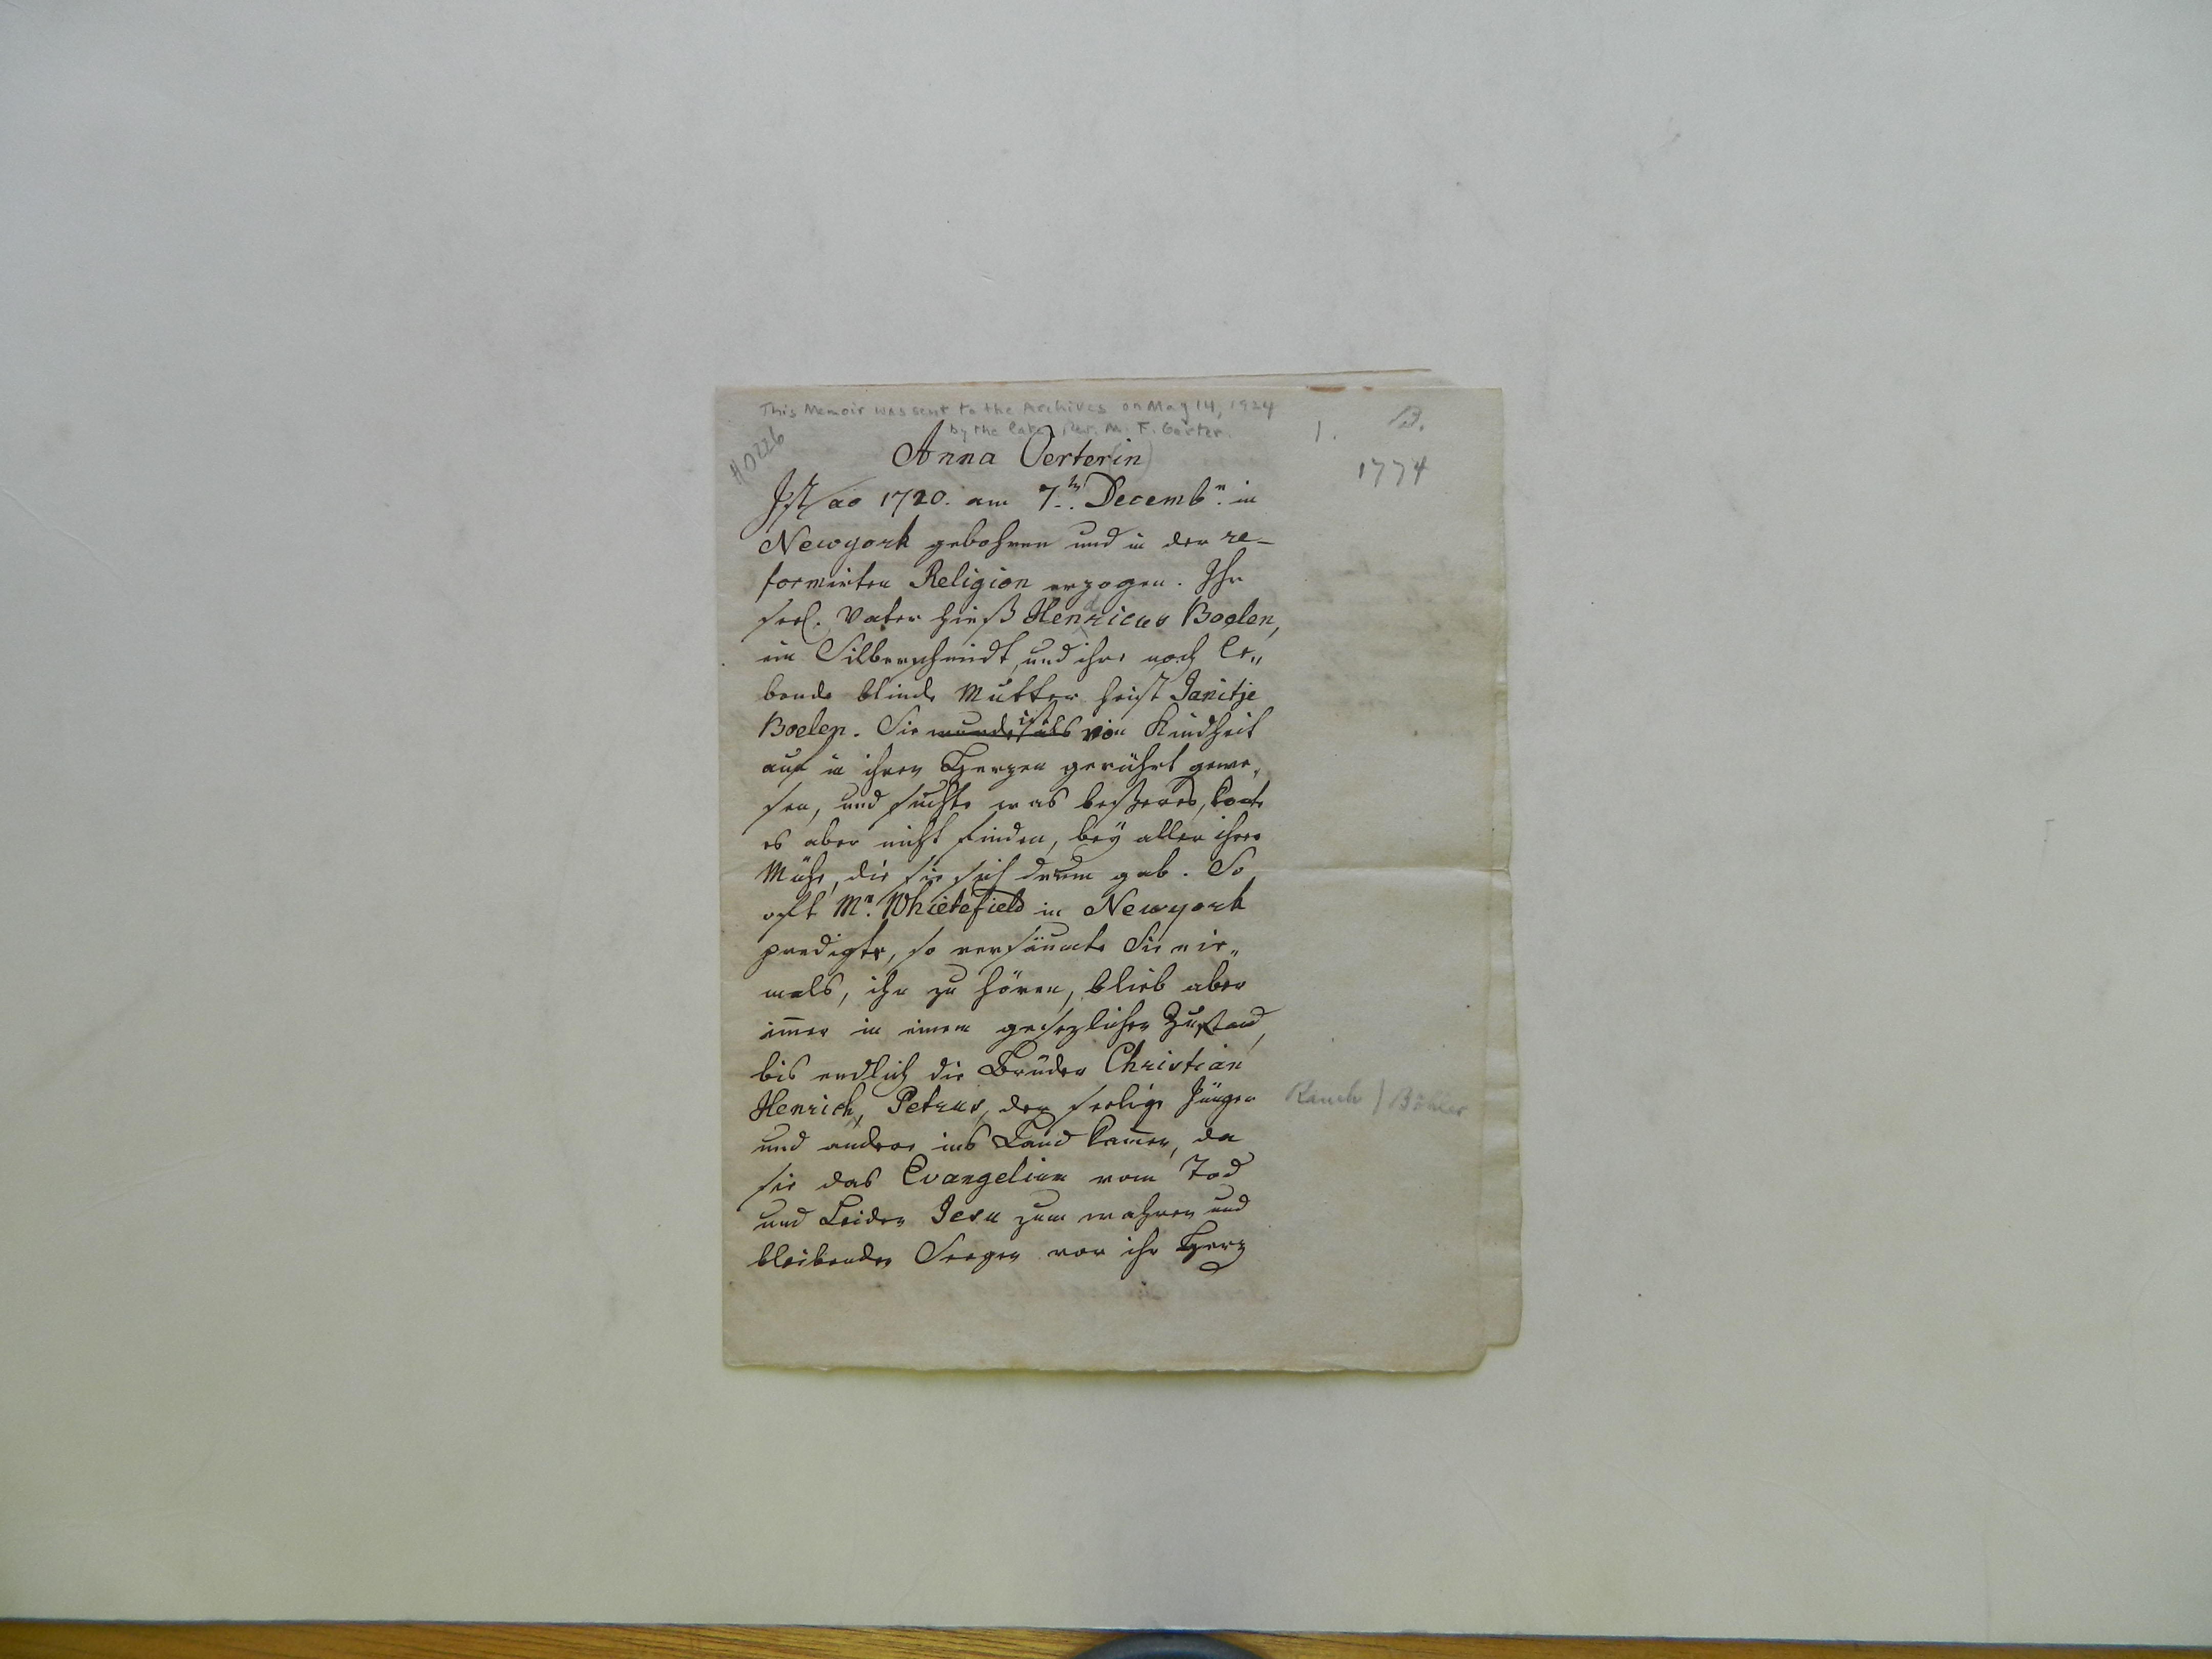 This Memoir was sent to the Archives on May 14, 1924
by the late Rev. M. F. Oerter.
1. B.
H0226
1774
Anna Oerter(in)
Ist ao 1720. am 7ten. Decembr. in
Newyork gebohren und in der re-
formirten Religion erzogen. Ihr
seel. Vater hieß Henricus Boelen,
ein Silberschmidt, und ihre noch le„
bende blinde Mutter heist Janitje
Boelen. Sie ist von Kindheit
auf in ihren Herzen gerührt gewe„
sen, und suchte was beßeres, konte
es aber nicht finden, bey aller ihrer
Mühe, die sie sich drum gab. So
oft Mr. Whietefield in Newyork
predigte, so versäumte Sie nie„
mals, ihn zu hören, blieb aber
im̄er in einem gesezlichen Zustand,
bis endlich die Brüder Christian
Henrich, Petrus, der seelige Jünger
Rauch) Böhler
und andere ins Land kamen, da
sie das Evangelium vom Tod
und Leiden Jesu zum wahren und
bleibenden Seegen vor ihr Herz